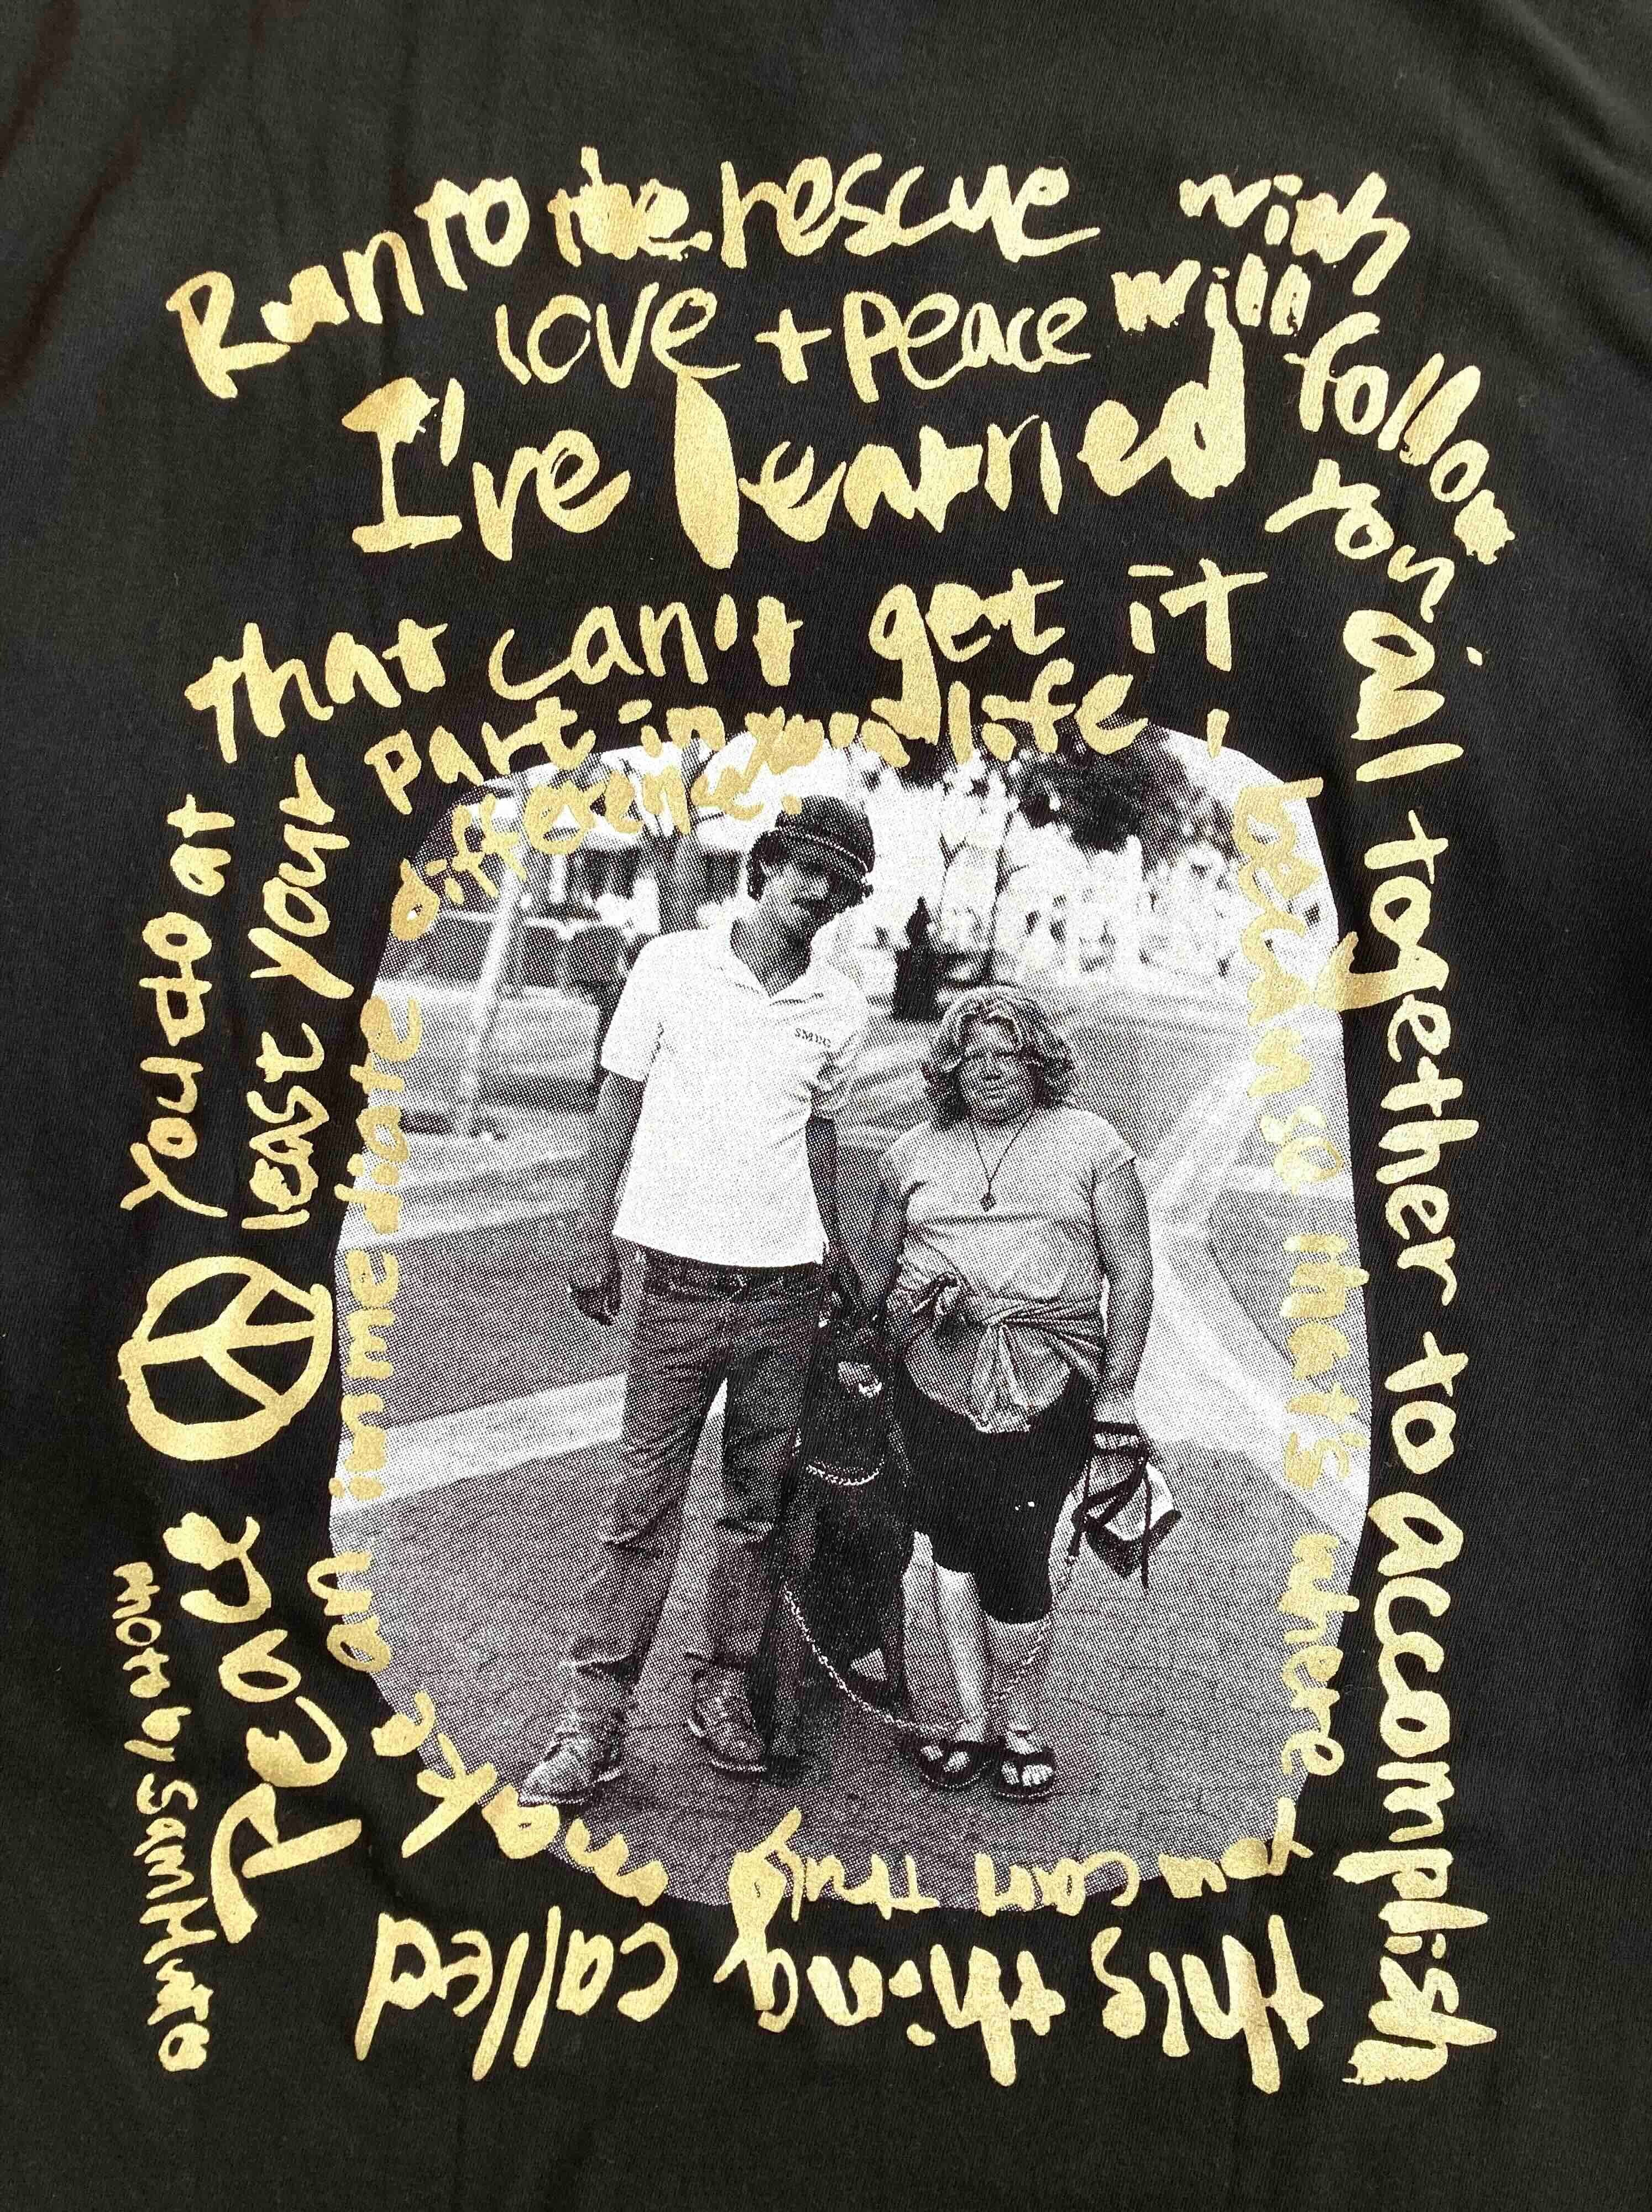 Run to the rescue with
love + peace will follow
I've learned your
that can't get it all together to accomplish
this thing called
Peace
You do at
least your
part in your life,
began so that's where
you can truly
make an immediate
difference.
SMYC